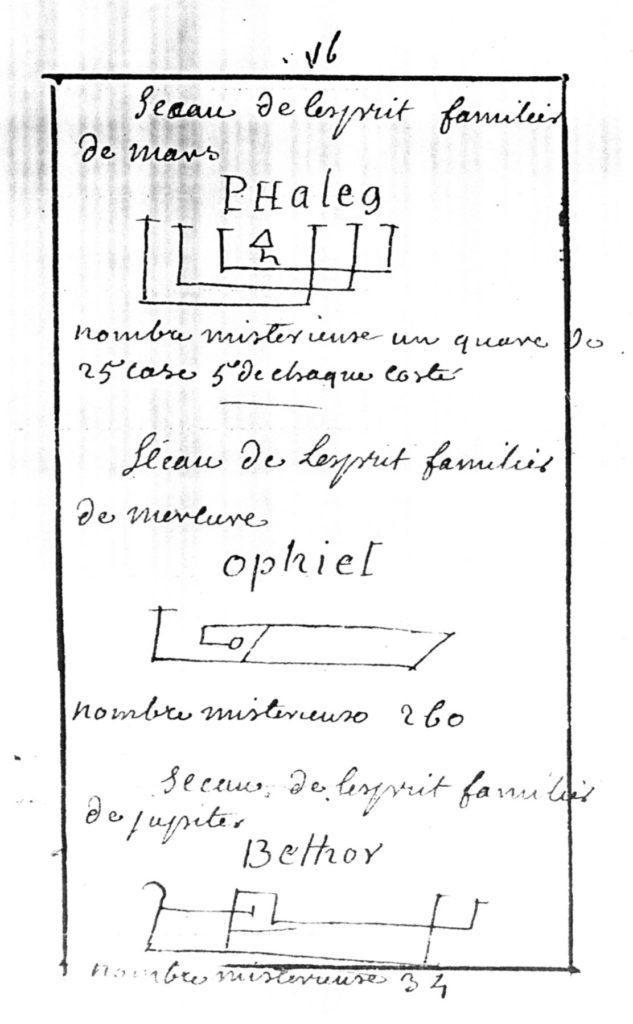 16
Seeau de lesprit familier
de mars
PHaleg
nombre misterieuse un quare de
25 case 5 de chaque costé
Séeau de Lesprit familier
de mercure
ophiel
nombre misterieuse 260
Seeau de lesprit familier
de jupiter
Bethor
nombre misterieuse 34